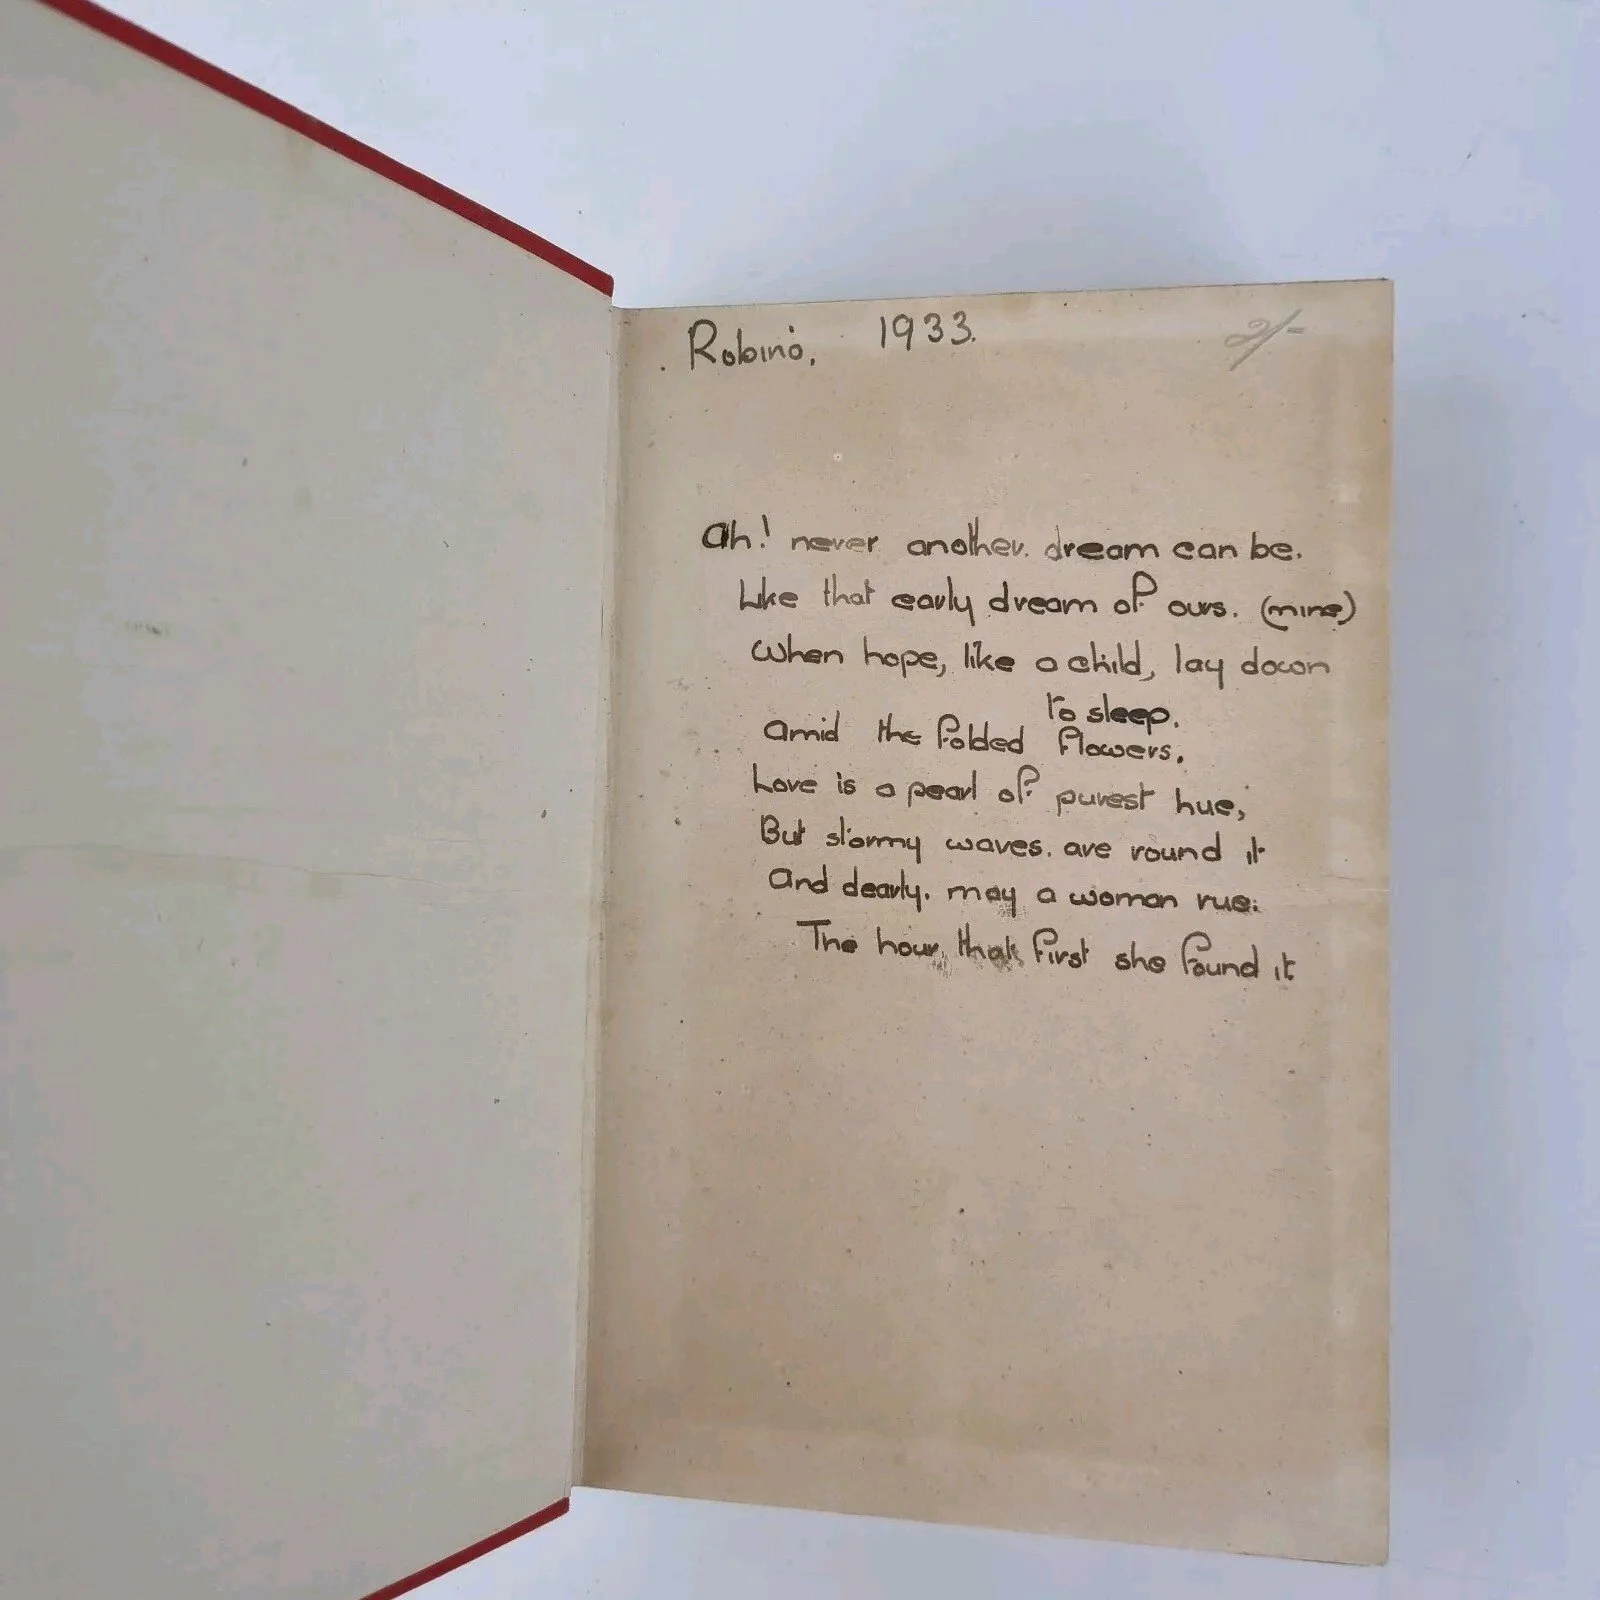 . Robinò, 1933.
2/-
Ah! never another. dream can be.
Like that early dream of ours. (mine)
When hope, like a child, lay down
to sleep.
Amid the folded flowers.
Love is a pearl of purest hue,
But stormy waves. are round it
And dearly. may a woman rue.
The hour, that first she found it